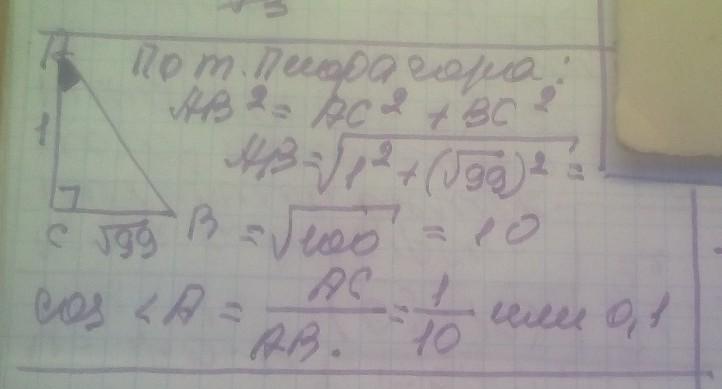 √3
A По т. Пифагора:
AB² = AC² + BC²
1 AB = √1² + (√99)² =
C √99 B = √100 = 10
cos ∠A = AC/AB. = 1/10 или 0,1